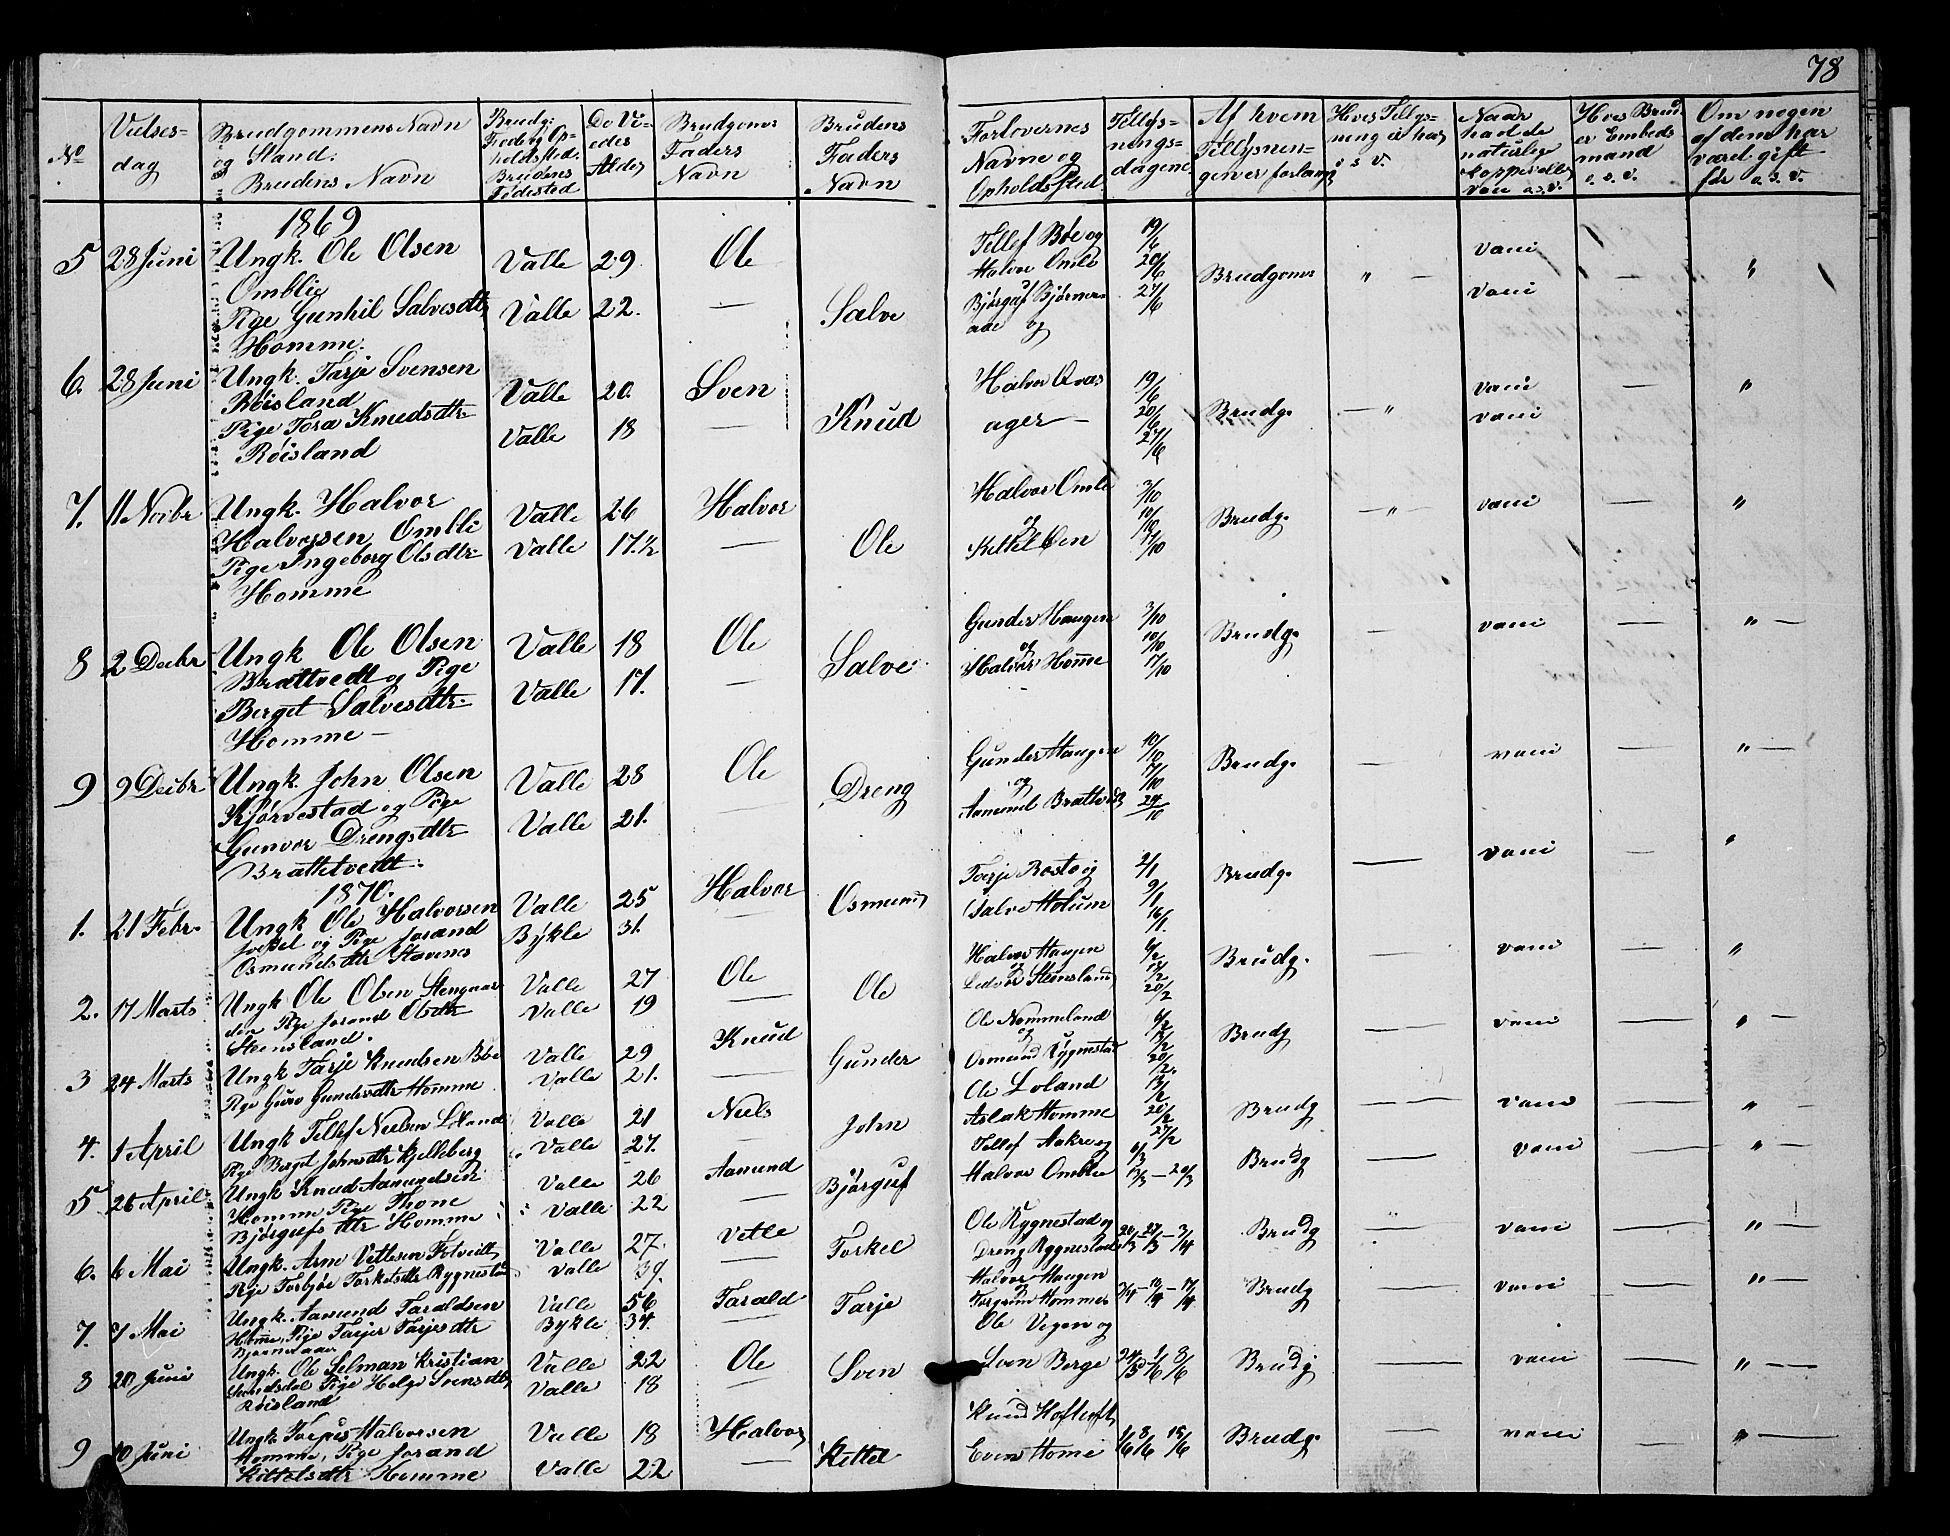 78
No
Vielses-
dag
Brudgommens Navn
og Stand.
Brudens Navn
Brudg:
Føde og Op-
holdssted.
Brudens
Fødested
De Vi-
edes
Alder
Brudgoms
Faders
Navn
Brudens
Faders
Navn
Forlovernes
Navne og
Opholdssted
Tillys-
nings-
dagene
Af hvem
Tillysnin-
gen er forlangt
Hvis Tillys-
ning ei har
u. s. v.
Naar
havde
naturlige
Kopper eller
vac. o.s.v.
Hvis Brud.
er Embeds
mand
o. s. v.
Om nogen
af dem har
været gift
før o. s. v.
1869
5 28 Juni Ungk. Ole Olsen Valle 29. Ole
Omblie
Pige Gunhil Salvesdtr Valle 22. — Salve
Homme.
Tellef Bøe og 19/6 vaci
Halvor Omli 20/6 Brudgoms " — — "
Bjørguf Bjørnar- 27/6 vaci
aae og
6. 28 Juni Ungk. Tarje Svensen Valle 20. Sven
Røisland
Pige Tora Knudsdtr. Valle 18 — Knud
Røisland
Halvor 19/6 vaci — "
ager — 20/6 Brudg. — " vaci
27/6
7. 11 Novbr Ungk. Halvor Valle 26 Halvor
Halvorsen Ombli
Pige Ingeborg Olsdtr. Valle 17.½ — Ole
Homme
Halvor Omli 3/10 vaci — "
og 10/10 Brudg. — " —
Kittil Øen 17/10
8 2 Decbr Ungk Ole Olsen Valle 18 Ole
Brattvedt og Pige
Berget Salvesdtr. Valle 17. — Salve
Homme —
Gunder Haugen 3/10 Brudg. — vaci — " —
og 10/10
Halvor Homme 17/10
9 9 Decbr Ungk. John Olsen Valle 28 Ole
Kjørvestad og Pige
Gunvor Drengsdtr Valle 21. — Dreng
Brattetvedt.
Gunder Haugen 10/10 Brudg. — vaci — " —
og 17/10
Aamund Brattvedt 24/10
1870.
1. 21 Febr. Ungk Ole Halvorsen Valle 25 Halvor
og Pige Jorand Bykle 31. — Osmund
Osmundsdtr Stavenes
Tarje Rosto og 2/1 Brudg. — vaci — "
Salve Holum 9/1
16/1.
2. 17 Marts Ungk Ole Olsen Stengaar Valle 27 Ole
den Pige Jorand Olsdtr Valle 19 — Ole
Steensland.
Halvor Haugen 6/2 Brudg. — vaci — "
og 13/2
Ledvor Steensland 20/2
3 24 Marts Ungk Tarje Knudsen Bøe Valle 29 Knud
Pige Guro Gundersdtr Homme Valle 21. — Gunder
Ole Nommeland 6/2 Brudg — vaci — " —
og 13/2
Osmund Rygnestad 20/2.
4. 1 April Ungk Tellef Nielsen Loland Valle 21 Niels
Pige Berget Johnsdtr Kjelleberg Valle 27. — John
Ole Loland 13/2
Aslak Homme 20/2 Brudg — vaci — " —
27/2
5 26 April Ungk Knud Aamundsen Valle 26 Aamund
Homme Pige Thone Valle 22 — Bjørguf
Bjørgufsdtr Homme
Tellef Aakre og 6/3 Brudg — vaci — "
Halvor Omblie 13/3 — 20/3
6. 6 Mai Ungk. Arne Vetlesen Valle 27. Vetle
Pige Torbjør Torkelsdtr Rygnestad Valle 39. — Torkel
Ole Rygnestad og 20/3 — 27/3 — 3/4 Brudg — vaci — " —
Dreng Rygnestad
7. 7 Mai Ungk. Aamund Taraldsen Valle 56 Tarald
Homme, Pige Tarjer Tarjesdtr Bykle 34. — Tarje
Halvor Haugen
og 3/4 — 10/4 — 17/4 Brudg — vaci — " —
Torgrim Homme
8 20 Juni Ungk. Ole Selman Kristian Valle 22 Ole
Pige Helge Svensdtr Valle 18 — Sven
Røisland
Ole Vegen og
Sven Berge 24/5 1/6 8/6 Brudg — vaci — " —
9 10 Juni Ungk. Halvorsen Valle 18 Halvor
Homme, Pige Jorand
Kittelsdtr Homme Valle 22 — Kittel
Knud
Even Homme 1/6 8/6 15/6 Brudg. — vaci — " —